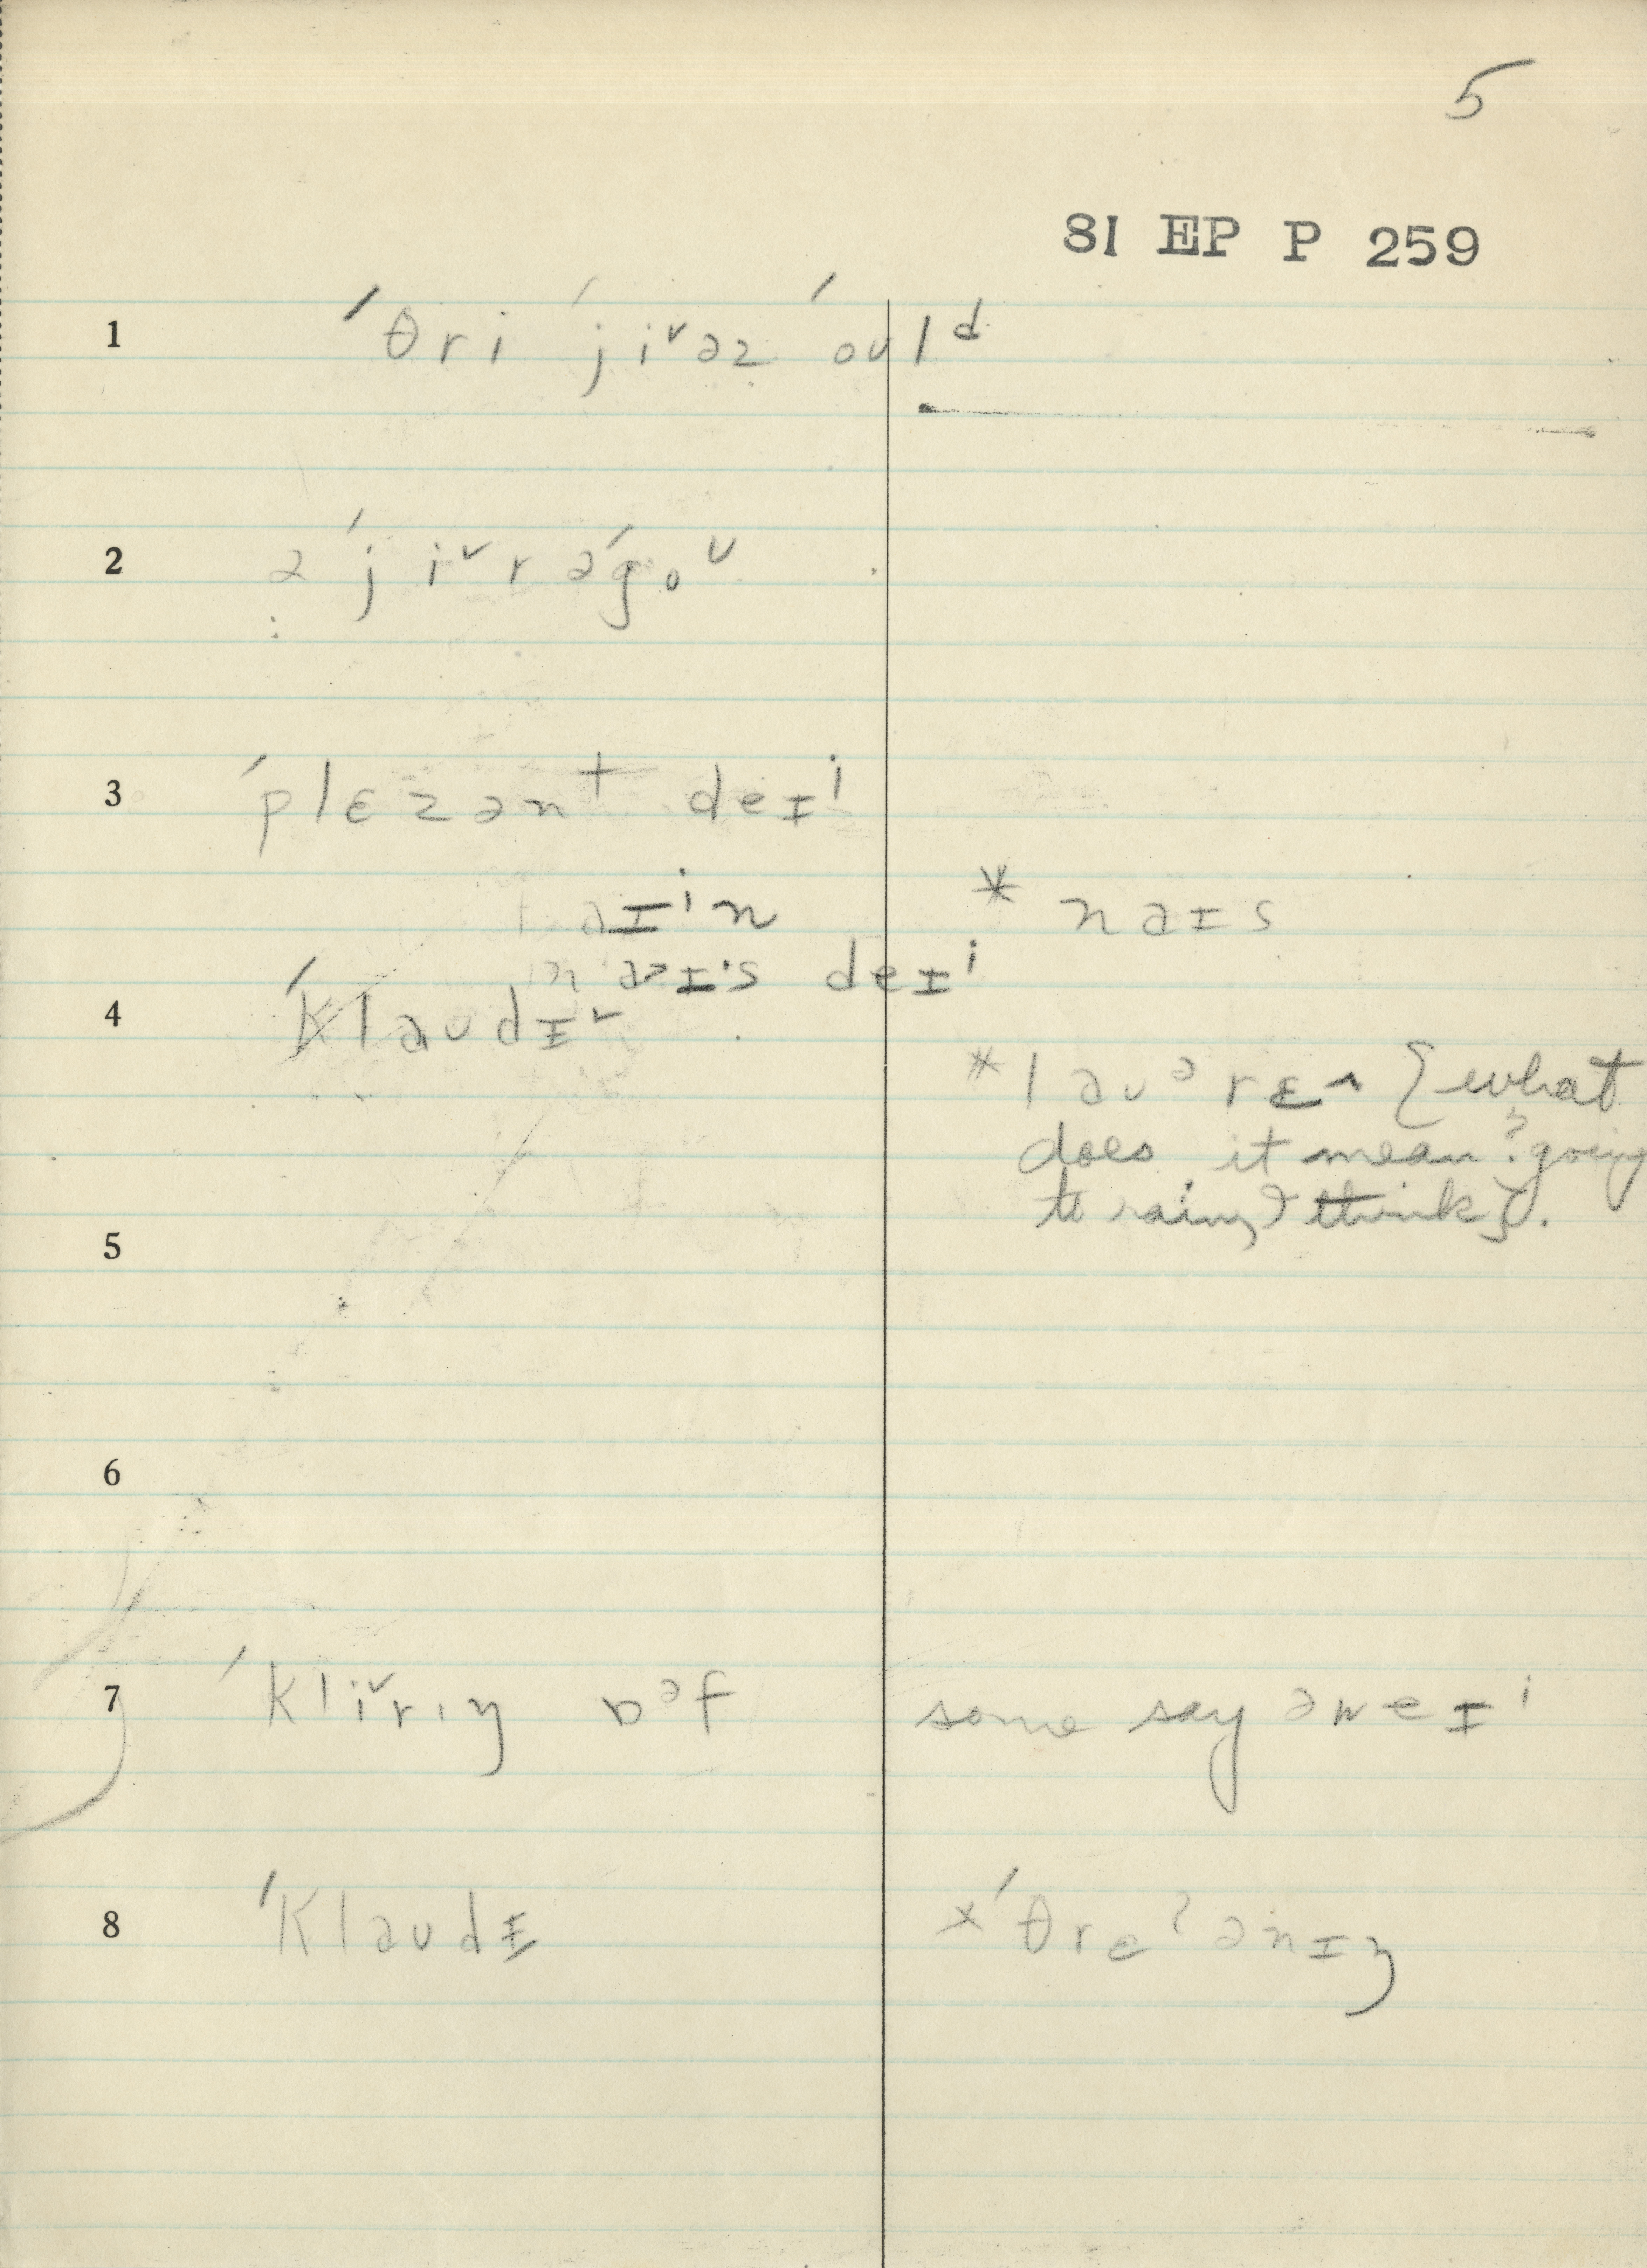 5
81 EP P 259
1 ˈθri ˈjiᵛəz ˈoʊlᵈ
2 ə ˈjiᵛr əˈgoᵛ
3 ˈplɛzənᵗ deɪⁱ
ɪⁱn * naɪs
naɪ·s deɪⁱ
4 ˈklaʊdɪᵛ
* laʊᵊrɛ^ {what
does it mean? going
5 to rain, I think}.
6
7 ˈkliᵛrɪŋ ɒᵊf some say əweɪⁱ
8 ˈklaʊdɪ xˈθreʔənɪŋ